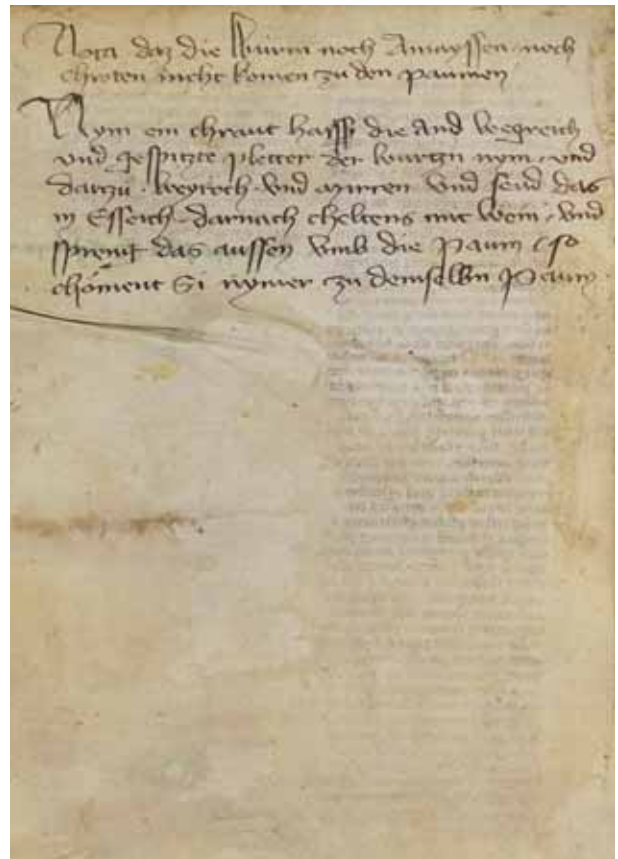 Nota daz die Würm noch Amayssen noch
chroten nicht komen zu den paumen
Nym ein chraut haisst die And wegreich
vnd gespitzte pletter der wurtzn nym vnd
dartzu weyroch vnd mirren vnd send das
in Esseich darnach cheltens mit wein vnd
spreng das aussen vmb die paum so
chöment Si nymer zu demselbn paum